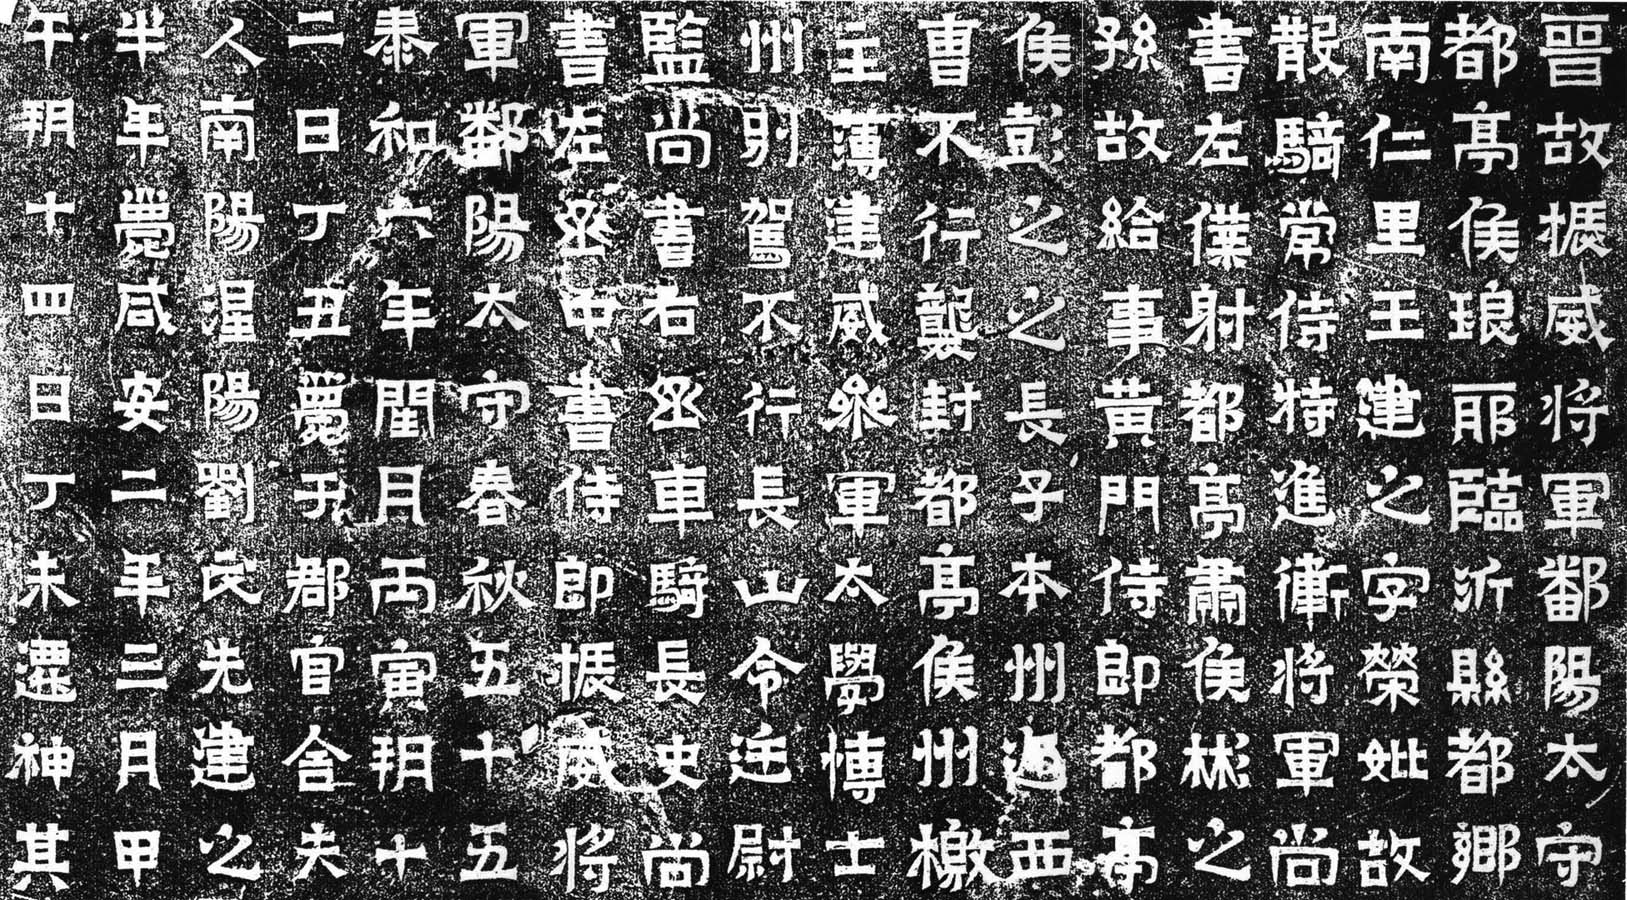 晉故振威将軍鄱陽太守
都亭侯琅耶臨沂縣都鄉
南仁里王建之字榮妣故
散騎常侍特進衛将軍尚
書左僕射都亭肅侯彬之
孫故給事黃門侍郎都亭
侯彭之之長子本州迎西
曹不行襲封都亭侯州檄
主薄建威參軍太學博士
州別駕不行長山令廷尉
監尚書右丞車騎長史尚
書左丞中書侍郎振威将
軍鄱陽太守春秋五十五
泰和六年閏月丙寅朔十
二日丁丑薨于郡官舍夫
人南陽涅陽劉氏先建之
半年薨咸安二年三月甲
午朔十四日丁未遷神其